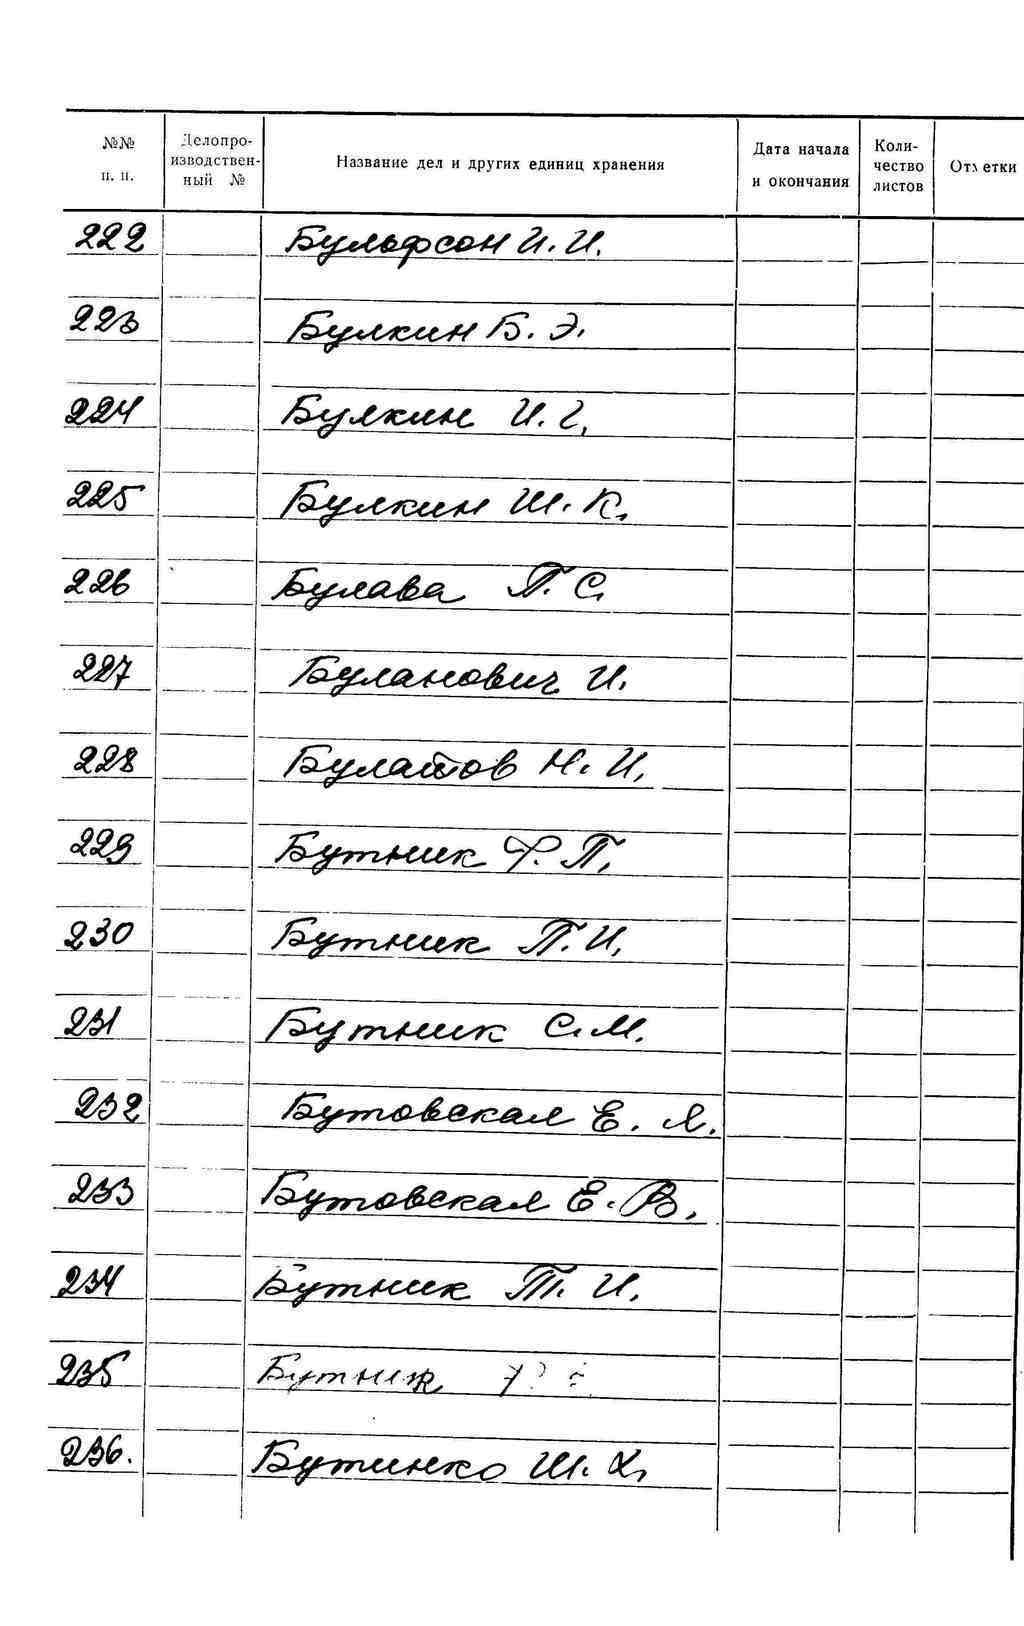 №№ п. п. Делопроизводственный № Название дел и других единиц хранения Дата начала и окончания Количество листов Отметки
222 Бульфсон И. И.
223 Булкин Б. Э.
224 Булкин И. Г.
225 Булкин Ш. К.
226 Булава П. С.
227 Буланович И.
228 Булатов Н. И.
229 Бутник Ф. П.
230 Бутник П. И.
231 Бутник С. М.
232 Бутовская Е. Я.
233 Бутовская Е. В.
234 Бутник Т. И.
235 Бутник
236. Бутинко Ш. Х.